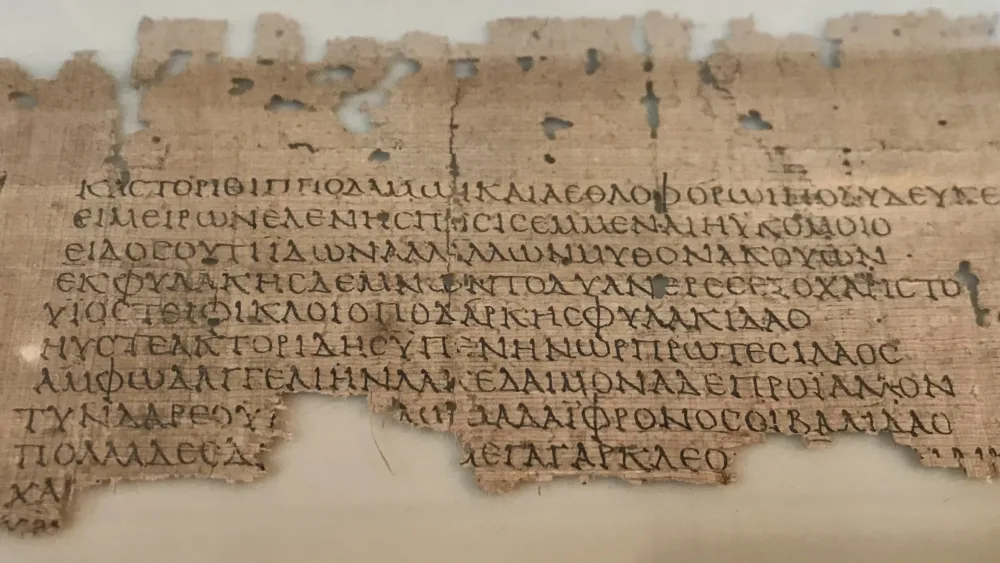 ΚΑΣΤΟΡΙΘΙΠΠΟΔΑΜΩΙΚΑΙΑΕΘΛΟΦΟΡΩΙΠΟΛΥΔΕΥΚΕ
ΕΙΜΕΙΡΩΝΕΛΕΝΗΣΠΟΣΙΣΕΜΜΕΝΑΙΗΥΚΟΜΟΙΟ
ΕΙΔΟΣΟΥΤΙΙΔΩΝΑΛΛΑΛΛΩΝΜΥΘΟΝΑΚΟΥΩΝ
ΕΚΦΥΛΑΚΗΣΔΕΜΝΩΝΤΟΔΥΑΝΕΡΕΣΕΞΟΧΑΡΙΣΤΟΙ
ΥΙΟΣΤΕΙΦΙΚΛΟΙΟΠΟΔΑΡΚΗΣΦΥΛΑΚΙΔΑΟ
ΗΥΣΤΕΑΚΤΟΡΙΔΗΣΥΠΕΝΗΝΩΡΠΡΩΤΕΣΙΛΑΟΣ
ΑΜΦΩΔΑΓΓΕΛΙΗΝΛΑΚΕΔΑΙΜΟΝΑΔΕΠΡΟΪΑΛΛΟΝ
ΤΥΝΔΑΡΕΟΥ ΔΩΜΑΔΑΪΦΡΟΝΟΣΟΙΒΑΛΙΔΑΟ
ΠΟΛΛΑΔΕΣΔ ΜΕΓΑΓΑΡΚΛΕΟ
ΧΑΛ